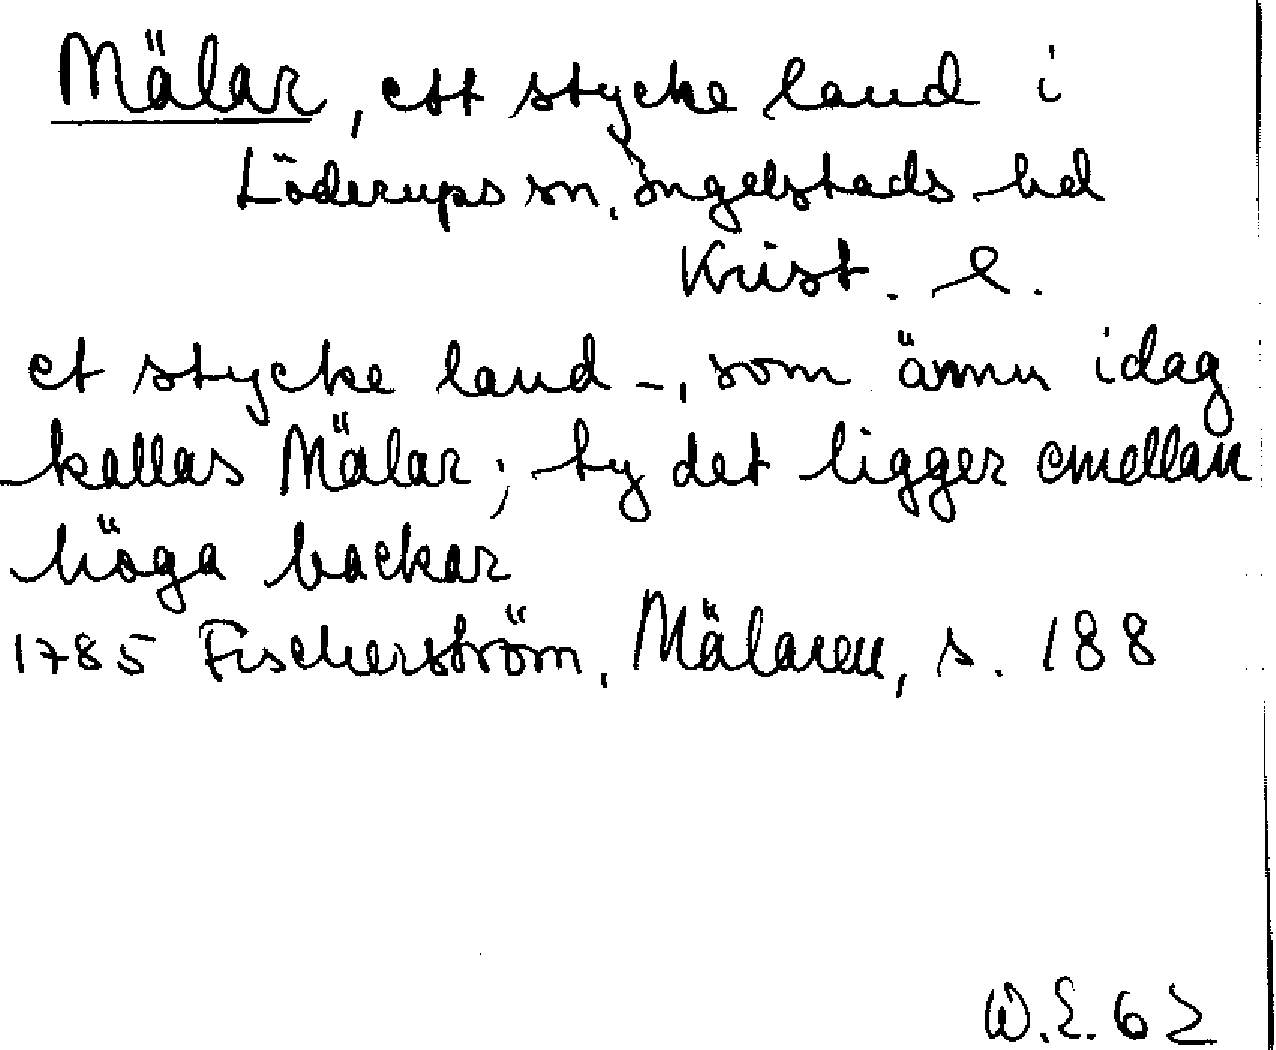 Mälar, ett stycke land i
Löderups sn, Ingelstads hd
Krist. l.
et stycke land -, som ännu idag
kallas Mälar; ty det ligger emellan
höga backar
1785 Fischerström, Mälaren, s. 188
W.E. 62